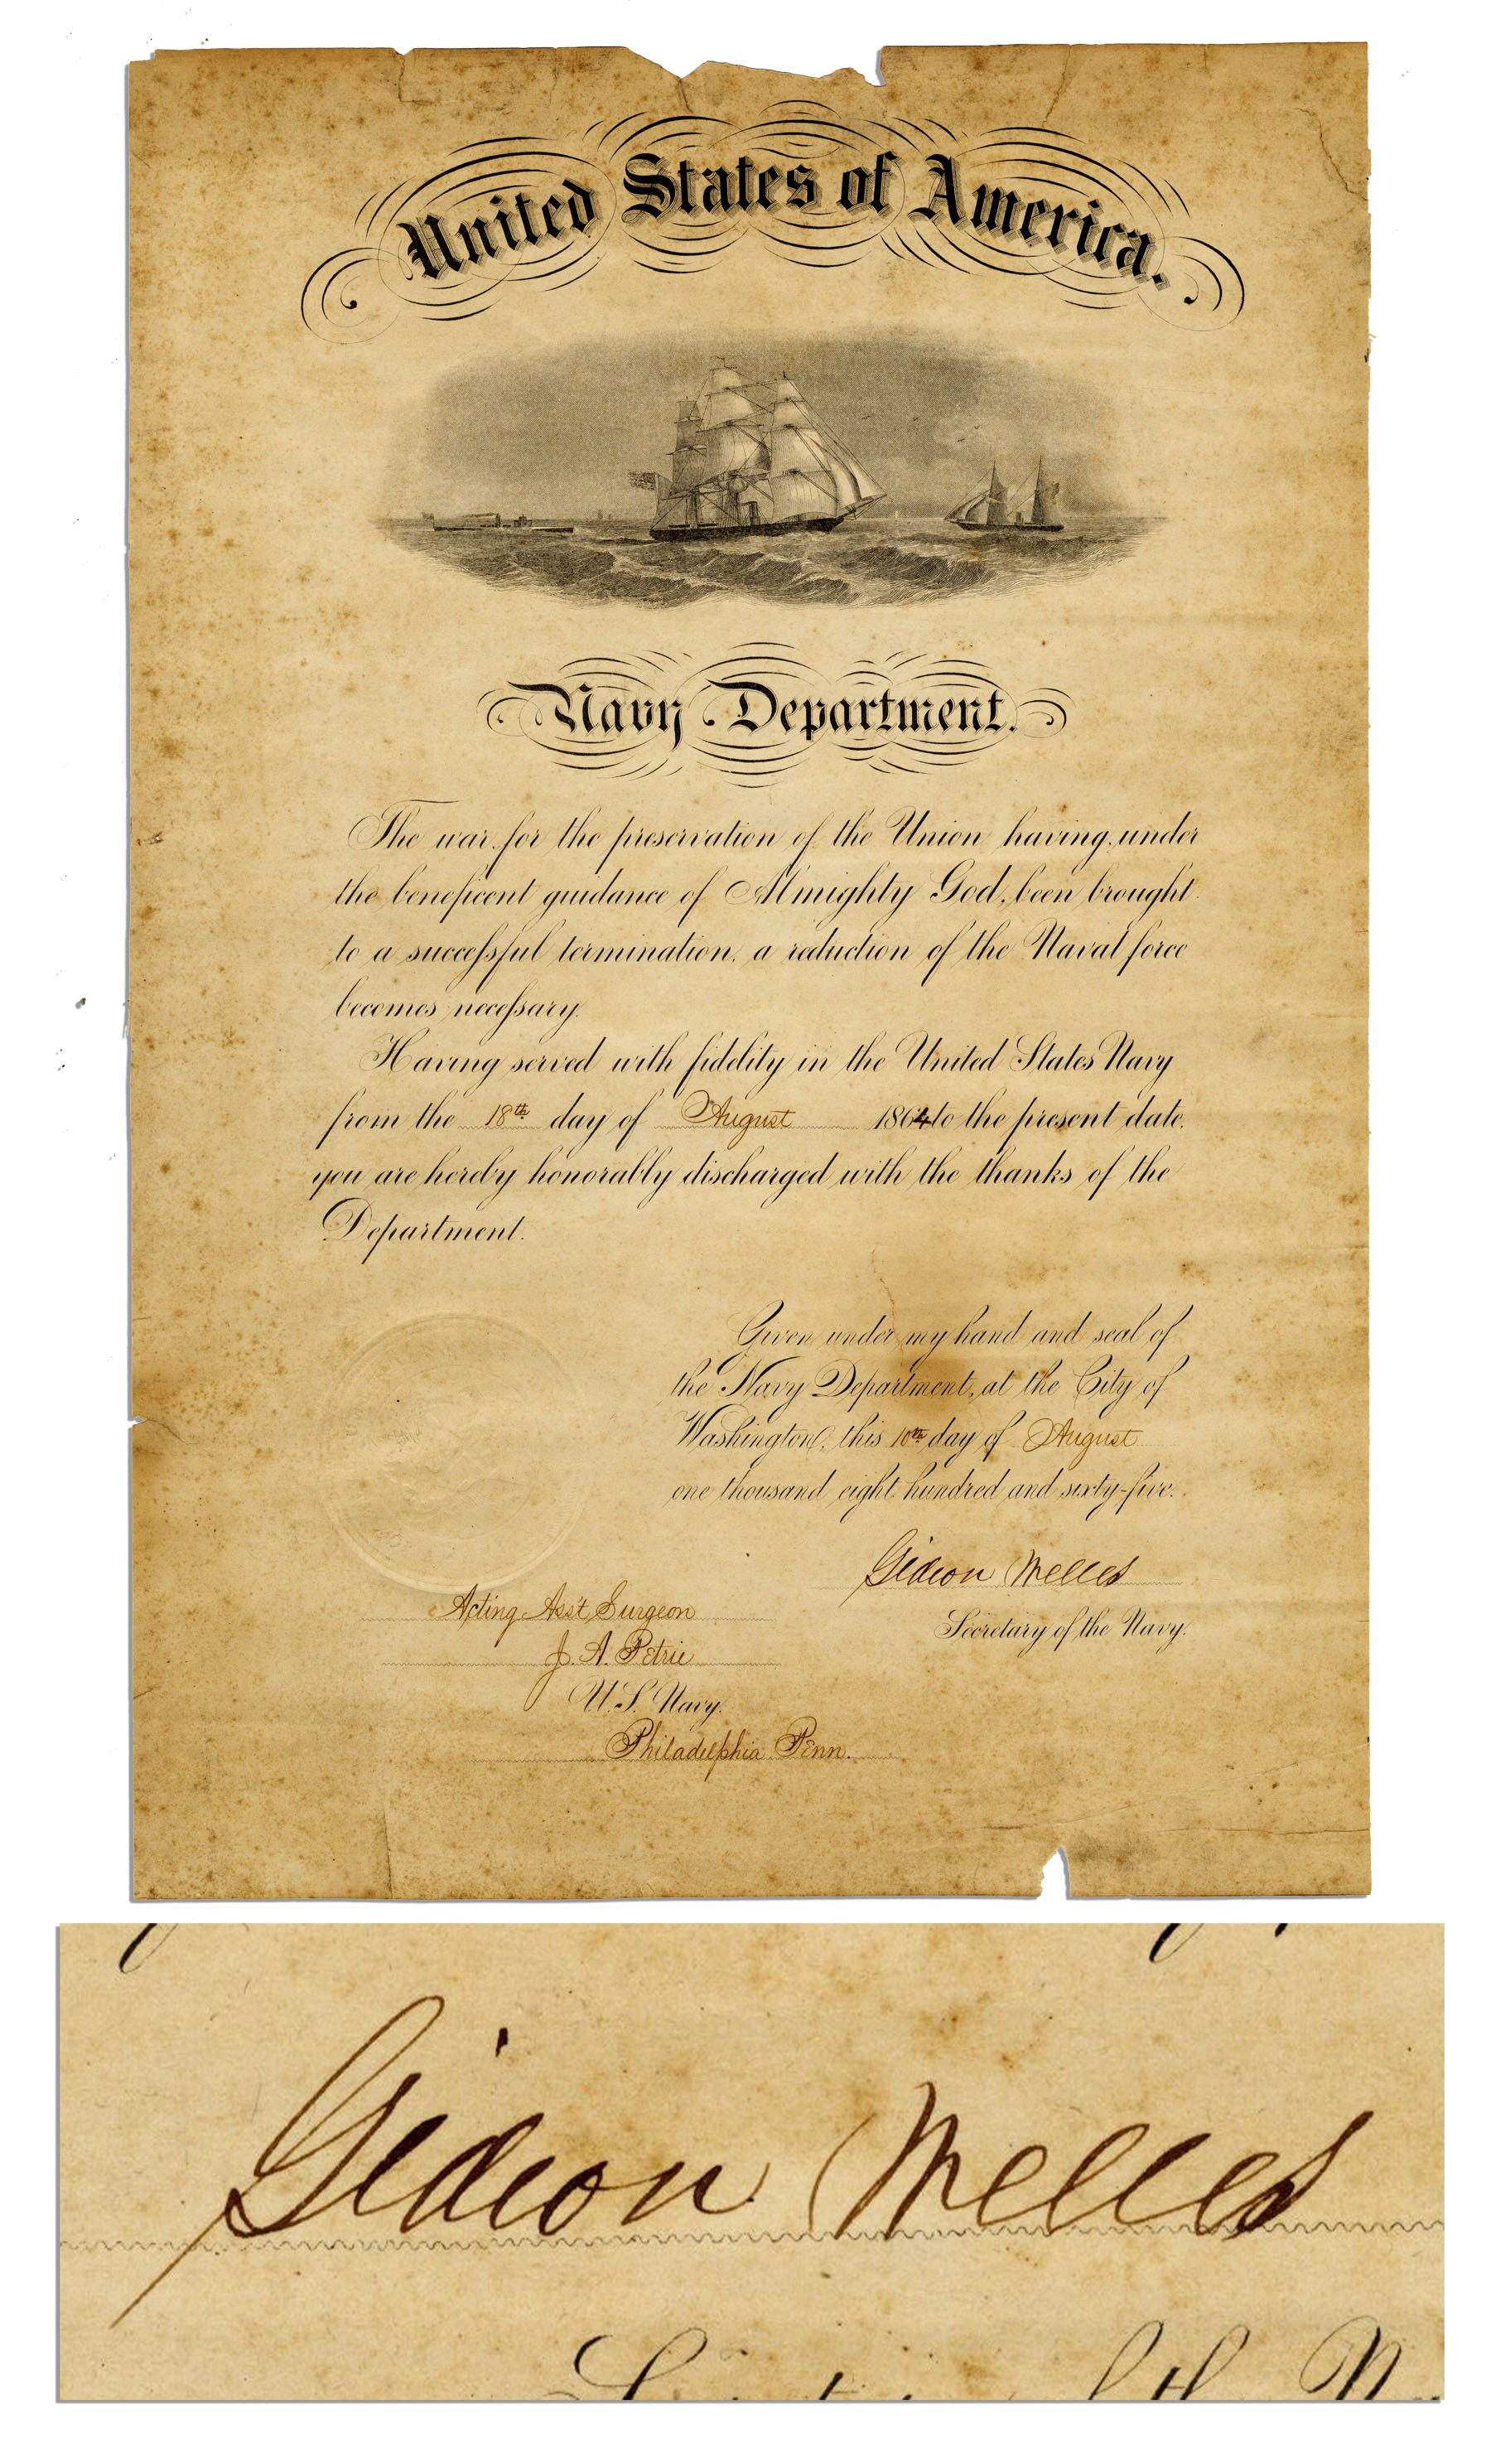 United States of America.
Navy Department.
The war for the preservation of the Union having, under
the beneficent guidance of Almighty God, been brought
to a successful termination, a reduction of the Naval force
becomes necessary.
Having served with fidelity in the United States Navy
from the 18th day of August 1864 to the present date,
you are hereby honorably discharged with the thanks of the
Department.
Given under my hand and seal of
the Navy Department, at the City of
Washington, this 10th day of August
one thousand eight hundred and sixty-five.
Gideon Welles
Secretary of the Navy.
Acting Asst Surgeon
J. A. Petrie
U.S. Navy.
Philadelphia Penn.
Gideon Welles